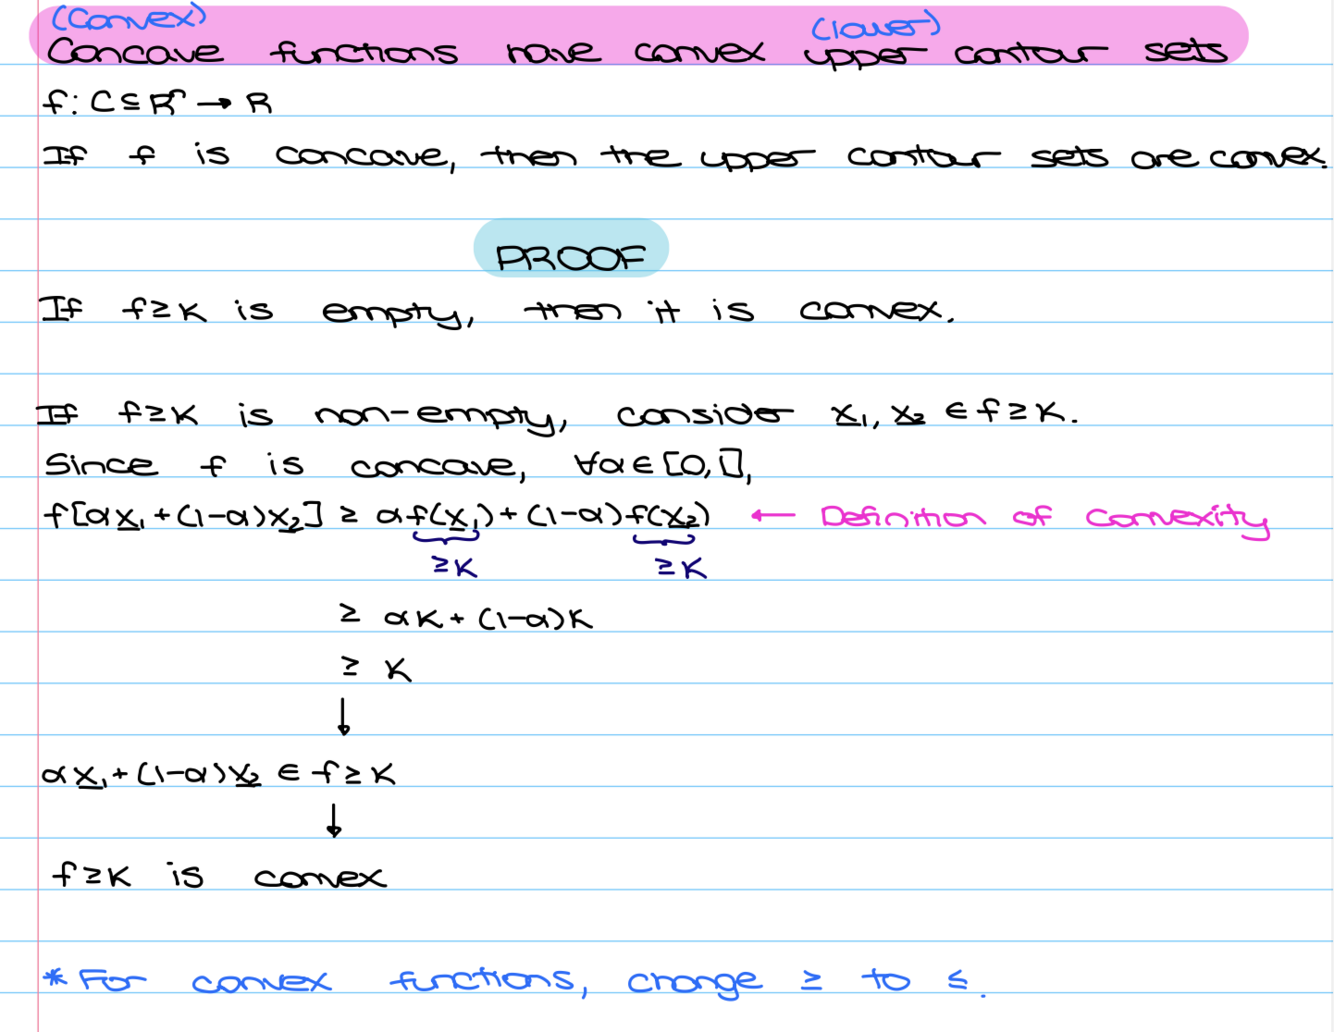 (Convex) (lower)
Concave functions have convex upper contour sets
f: C ⊆ Rⁿ → R
If f is concave, then the upper contour sets are convex.
PROOF
If f≥K is empty, then it is convex.
If f≥K is non-empty, consider x₁, x₂ ∈ f≥K.
Since f is concave, ∀α∈[0,1],
f[αx₁+(1-α)x₂] ≥ αf(x₁)+(1-α)f(x₂) ← Definition of Convexity
≥K ≥K
≥ αK+(1-α)K
≥ K
↓
αx₁+(1-α)x₂ ∈ f≥K
↓
f≥K is convex
* For convex functions, change ≥ to ≤.